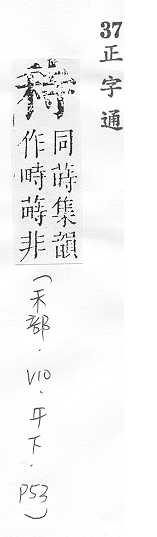 37正字通
同蒔集韻
作時蒔非
(禾部.V10.午下.P53)